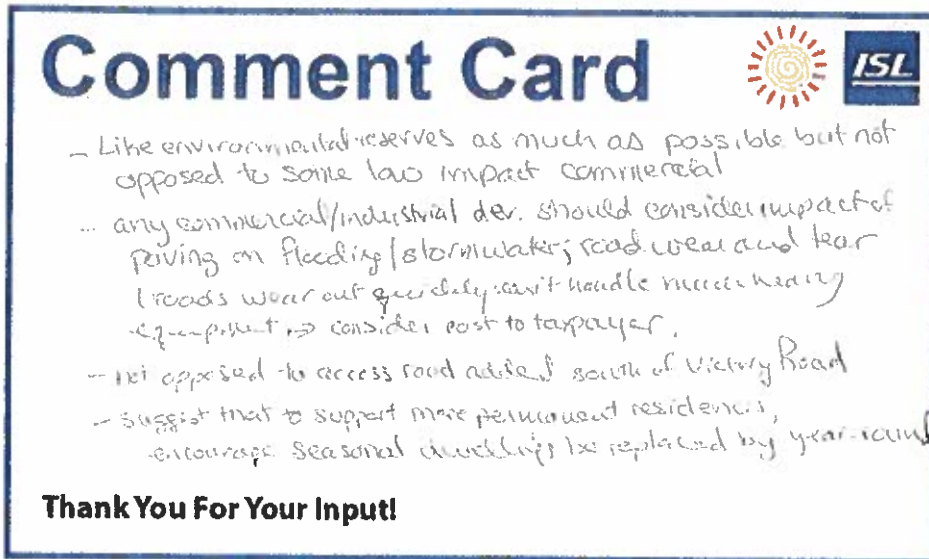 Comment Card
ISL
- Like environmental reserves as much as possible but not
opposed to some low impact commercial
- any commercial/industrial dev. should consider impact of
paving on flooding/stormwater; road wear and tear
(roads wear out quickly can't handle much heavy
equipment → consider cost to taxpayer.
- not opposed to access road added south of Victory Road
- suggest that to support more permanent residences,
encourage seasonal dwellings be replaced by year-round
Thank You For Your Input!